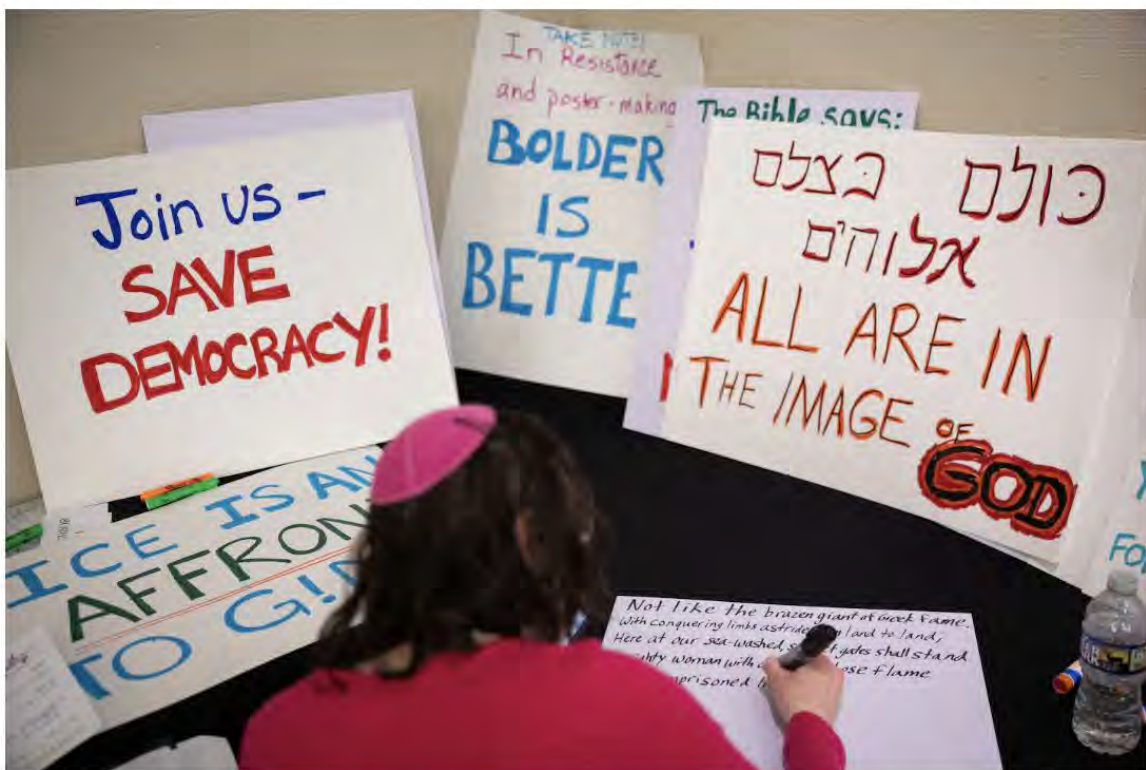 Join us –
SAVE
DEMOCRACY!
TAKE NOTE!
In Resistance
and poster-making
BOLDER
IS
BETTE
The Bible says:
כולם בצלם
אלוהים
ALL ARE IN
THE IMAGE OF
GOD
ICE IS AN
AFFRON
TO G!
Not like the brazen giant of Greek fame,
With conquering limbs astride land to land;
Here at our sea-washed, gates shall stand
woman with
flame